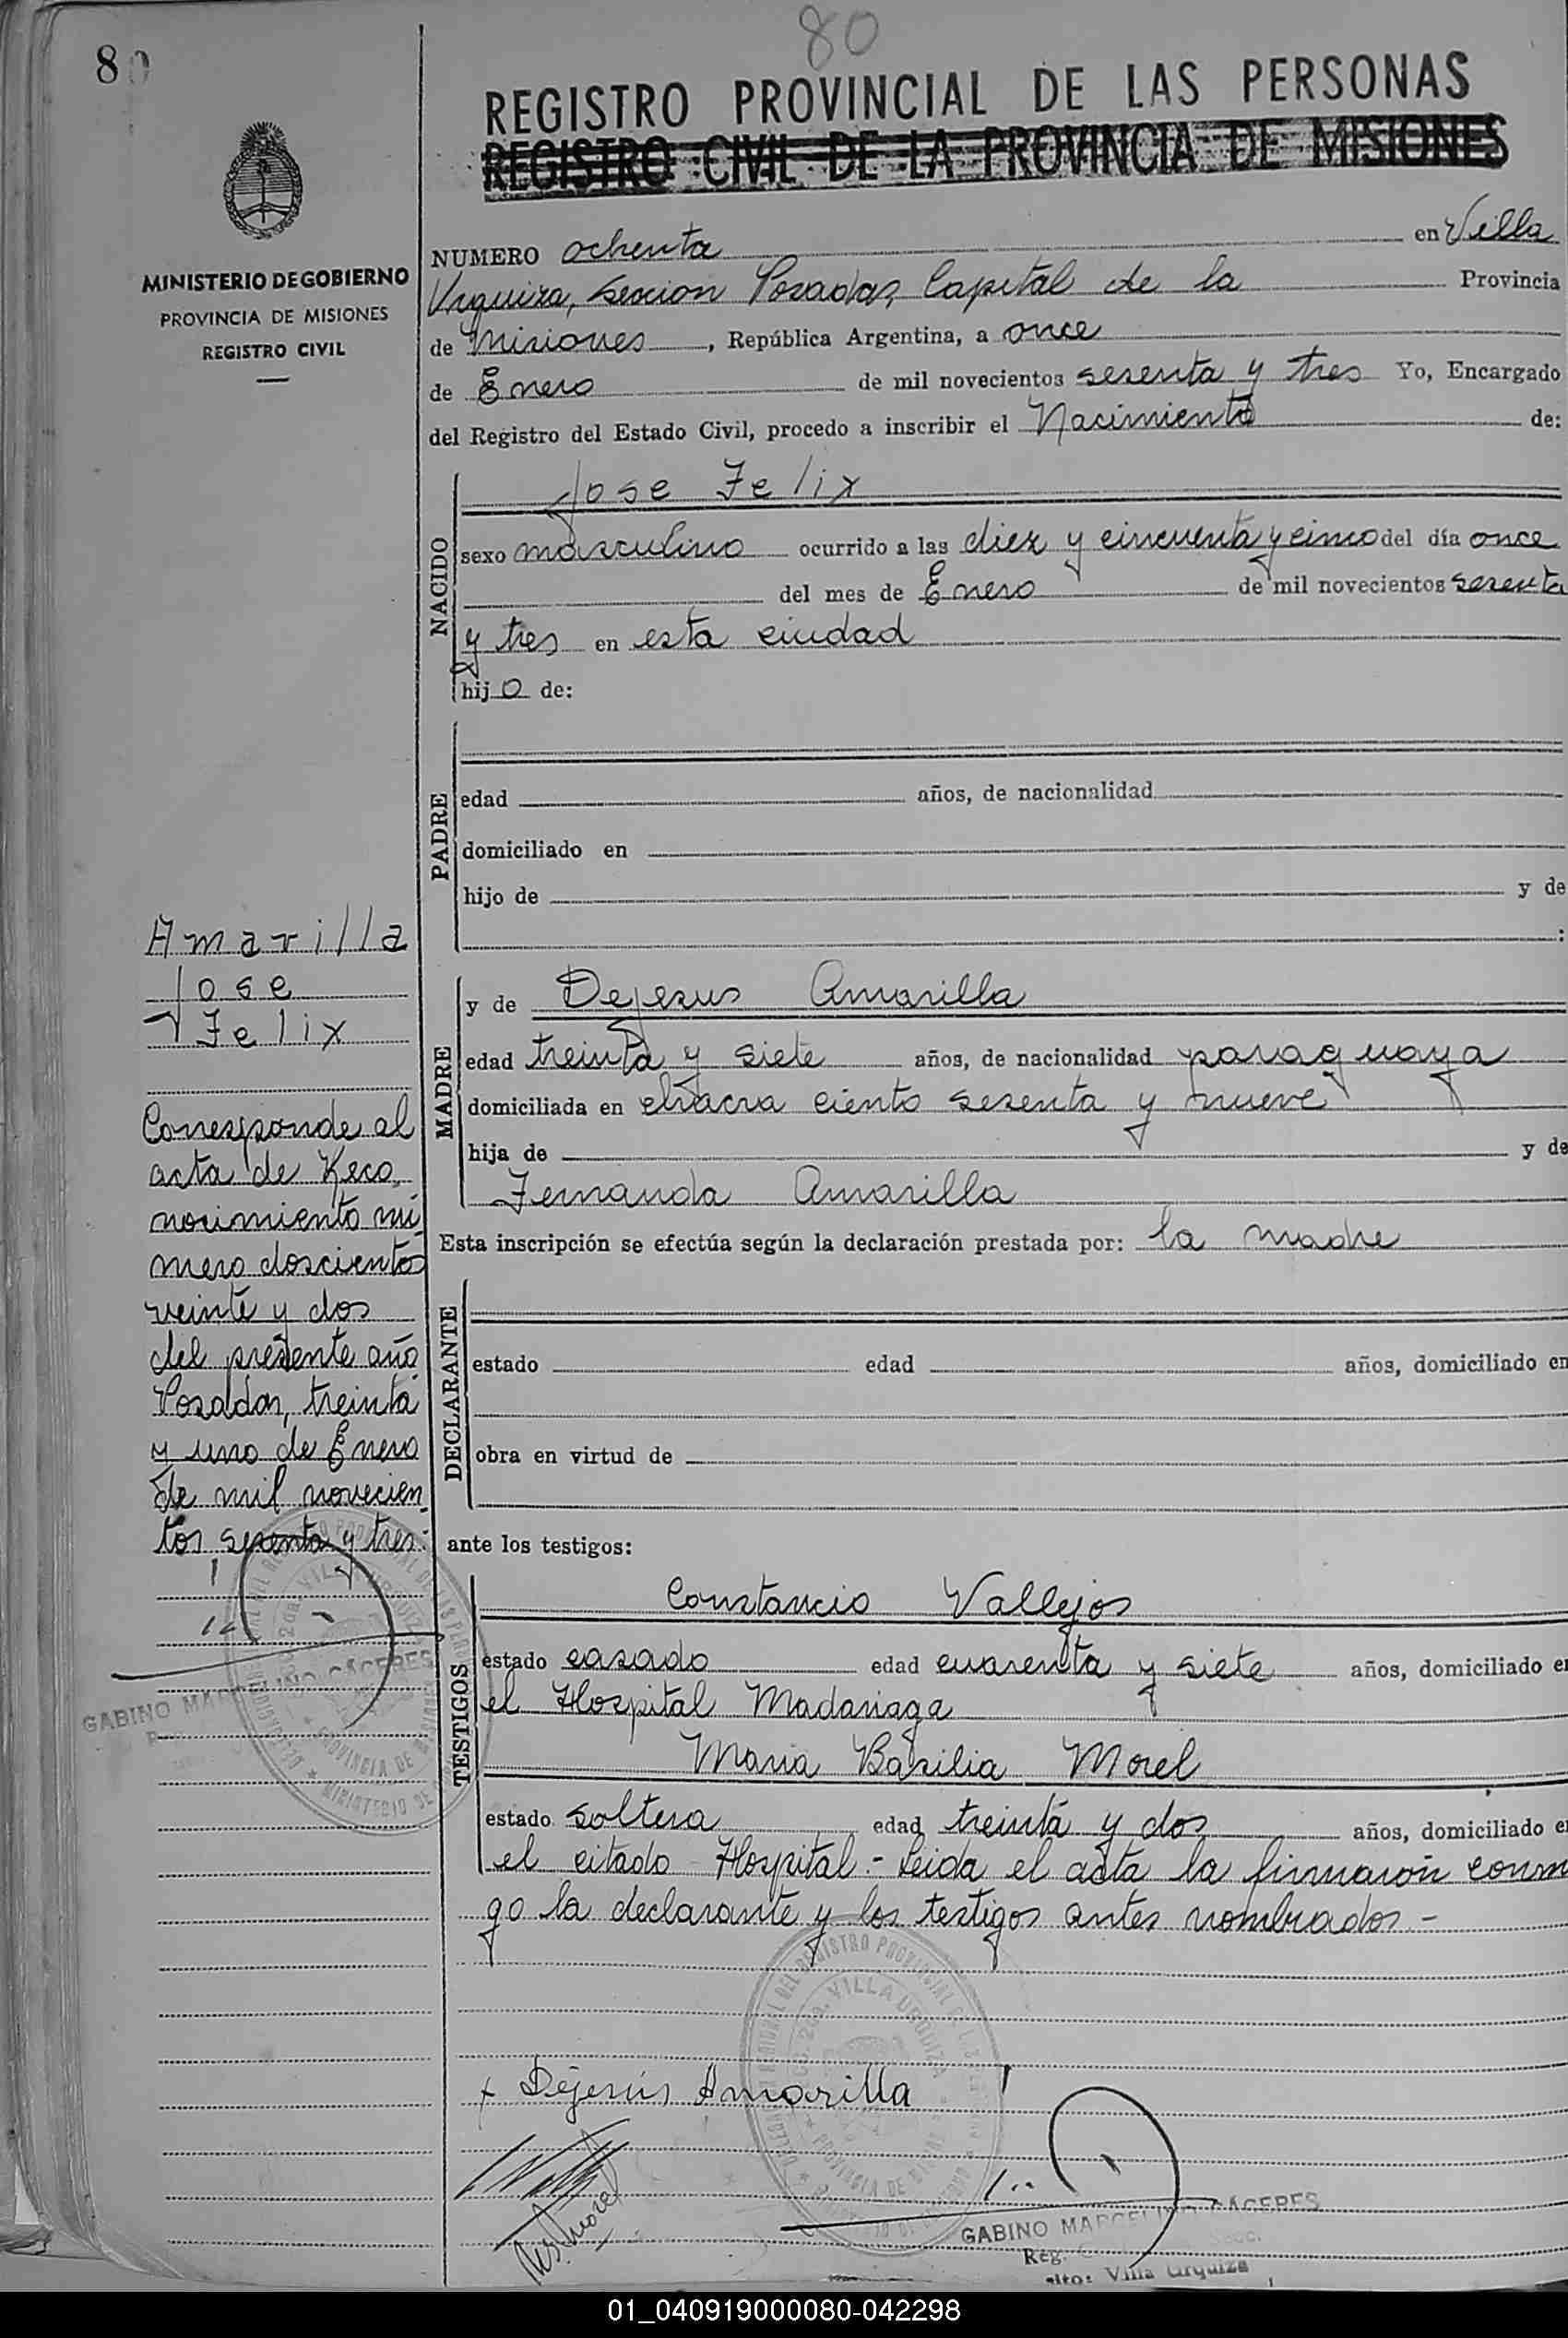 80
80
REGISTRO PROVINCIAL DE LAS PERSONAS
REGISTRO CIVIL DE LA PROVINCIA DE MISIONES
MINISTERIO DE GOBIERNO
PROVINCIA DE MISIONES
REGISTRO CIVIL
NUMERO ochenta en Villa
Urquiza, seccion Posadas, Capital de la Provincia
de Misiones, República Argentina, a once
de Enero de mil novecientos sesenta y tres Yo, Encargado
del Registro del Estado Civil, procedo a inscribir el Nacimiento de:
NACIDO
Jose Felix
sexo masculino ocurrido a las diez y cincuenta y cinco del día once
del mes de Enero de mil novecientos sesenta
y tres en esta ciudad
hijo de:
PADRE
edad años, de nacionalidad
domiciliado en
hijo de y de
:
MADRE
y de Dejesus Amarilla
edad treinta y siete años, de nacionalidad paraguaya
domiciliada en chacra ciento sesenta y nueve
hija de y de
Fernanda Amarilla
Esta inscripción se efectúa según la declaración prestada por: la madre
DECLARANTE
estado edad años, domiciliado en
obra en virtud de
ante los testigos:
TESTIGOS
Constancio Vallejos
estado casado edad cuarenta y siete años, domiciliado en
el Hospital Madariaga
Maria Basilia Morel
estado soltera edad treinta y dos años, domiciliado en
el citado Hospital.- Leida el acta la firmaron conmi
go la declarante y los testigos antes nombrados.-
Amarilla
Jose
Felix
Corresponde al
acta de Reco-
nocimiento nú
mero doscientos
veinte y dos
del presente año
Posadas, treinta
y uno de Enero
de mil novecien
tos sesenta y tres.-
GABINO MARCELINO CÁCERES
x Dejesús Amarilla
GABINO MARCELINO CÁCERES
Reg.
Villa Urquiza
01_040919000080-042298